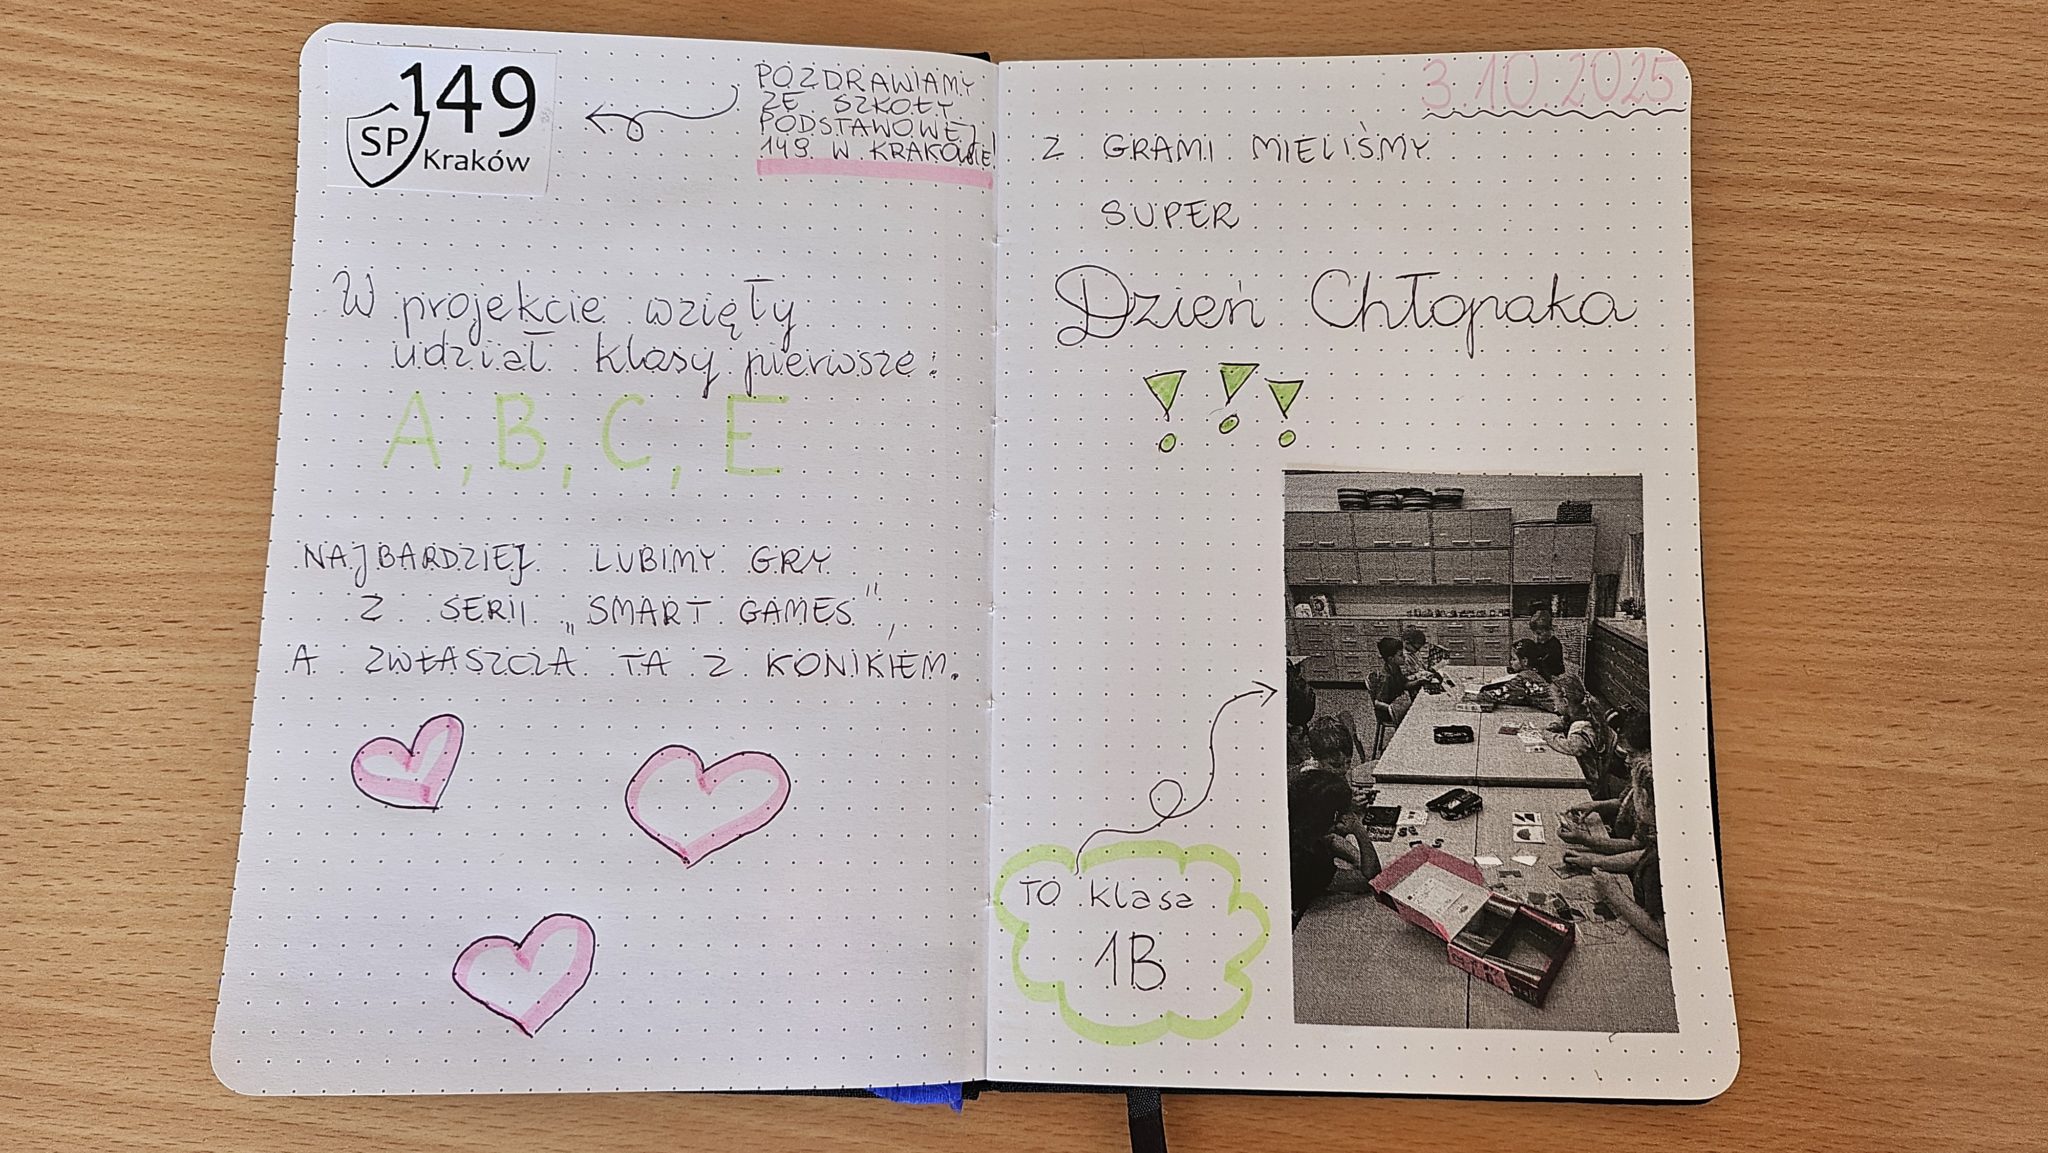 149
SP
Kraków
POZDRAWIAMY
ZE SZKOŁY
PODSTAWOWEJ
149 W KRAKOWIE!
W projekcie wzięły
udział klasy pierwsze:
A, B, C, E
NAJBARDZIEJ LUBIMY GRY
Z SERII „SMART GAMES”,
A ZWŁASZCZA TA Z KONIKIEM.
3.10.2025
Z GRAMI MIELIŚMY
SUPER
Dzień Chłopaka
!!!
TO klasa
1B